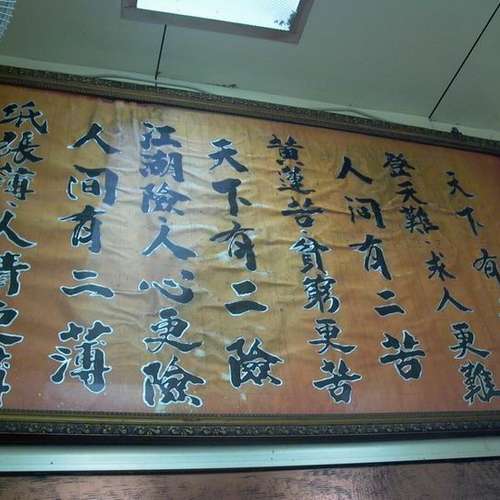 天下有
登天難·求人更難
人間有二苦
黃蓮苦·貧窮更苦
天下有二險
江湖險·人心更險
人間有二薄
紙張薄·人情更薄